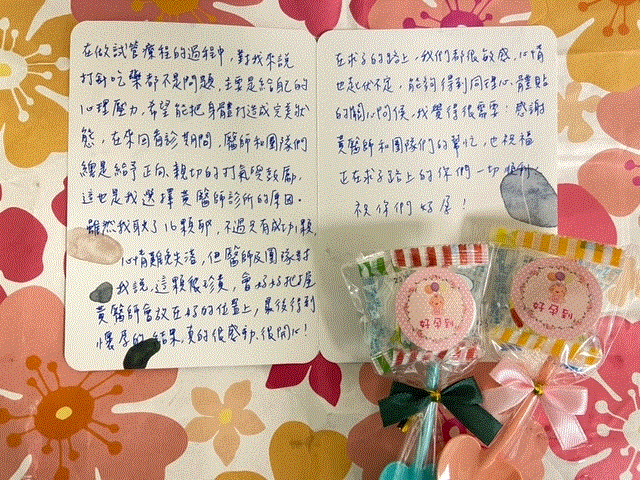 在做試管療程的過程中，對我來說
打針吃藥都不是問題，主要是給自己的
心理壓力，希望能把身體打造成完美狀
態，在來回看診期間，醫師和團隊們
總是給予正向、親切的打氣與鼓勵，
這也是我選擇黃醫師診所的原因。
雖然我取了16顆卵，不過只有成功1顆，
心情難免失落，但醫師及團隊對
我說，這顆很珍貴，會好好把握
黃醫師會放在好的位置上，最後得到
懷孕的結果，真的很感動、很開心！
在求子的路上，我們都很敏感，心情
也起伏不定，能夠得到同理心、體貼
的關心問侯，我覺得很需要！感謝
黃醫師和團隊們的幫忙，也祝福
正在求子路上的你們一切順利，
祝你們好孕！
好孕到
好孕到